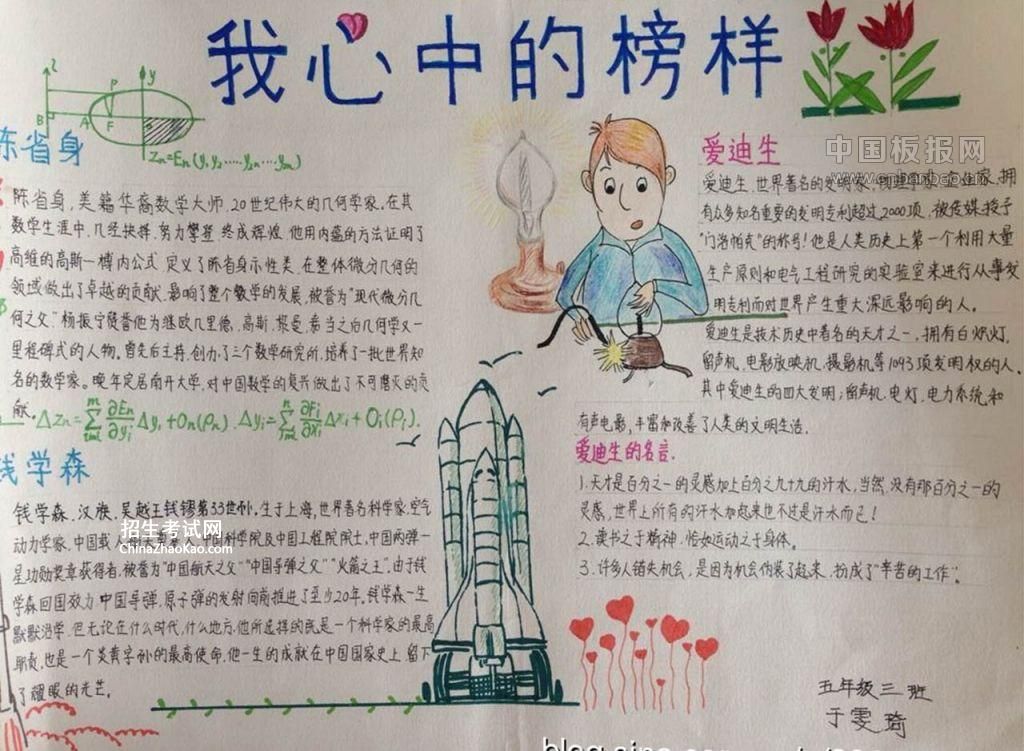 我心中的榜样
陈省身
Zn=En(y,y2....yn...ym)
陈省身,美籍华裔数学大师,20世纪伟大的几何学家。在其
数学生涯中,几经抉择,努力攀登,终成辉煌。他用内蕴的方法证明了
高维的高斯一博内公式,定义了陈省身示性类,在整体微分几何的
领域做出了卓越的贡献,影响了整个数学的发展,被誉为"现代微分几
何之父"杨振宁赞誉他为继欧几里德,高斯,黎曼,嘉当之后几何学又一
里程碑式的人物。曾先后主持,创办了三个数学研究所,培养了一批世界知
名的数学家。晚年定居南开大学,对中国数学的复兴做出了不可磨灭的贡
献。
钱学森
钱学森,汉族,吴越王钱镠第33世孙。生于上海,世界著名科学家,空气
动力学家,中国载人
中国科学院及中国工程院院士,中国两弹一
星功勋奖章获得者,被誉为"中国航天之父""中国导弹之父""火箭之王",由于钱
学森回国效力,中国导弹,原子弹的发射向前推进了至少20年。钱学森一生
默默治学,但无论在什么时代,什么地方,他所选择的既是一个科学家的最高
职责,也是一个炎黄子孙的最高使命,他一生的成就在中国国家史上,留下
了耀眼的光芒。
爱迪生
爱迪生,世界著名的发明家,物理学家,企业家,拥
有众多知名重要的发明专利超过2000项,被传媒授予
"门洛帕克"的称号!他是人类历史上第一个利用大量
生产原则和电气工程研究的实验室来进行从事发
明专利而对世界产生重大深远影响的人。
爱迪生是技术历史中著名的天才之一,拥有白炽灯,
留声机,电影放映机,摄影机等1093项发明权的人。
其中爱迪生的四大发明;留声机,电灯,电力系统和
有声电影,丰富和改善了人类的文明生活。
爱迪生的名言.
1.天才是百分之一的灵感加上百分之九十九的汗水,当然,没有那百分之一的
灵感,世界上所有的汗水加起来也不过是汗水而已!
2.读书之于精神,恰如运动之于身体。
3.许多人错失机会,是因为机会伪装了起来,扮成了"辛苦的工作"。
五年级三班
于雯琦
中国板报网
招生考试网
ChinaZhaoKao.com